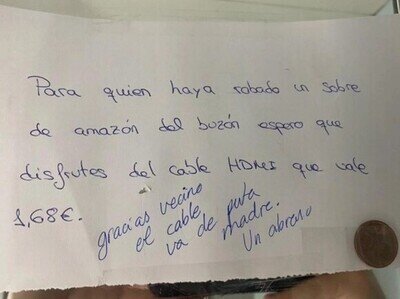 Para quien haya robado un sobre
de amazón del buzón espero que
disfrutes del cable HDMI que vale
1,68€.
gracias vecino
el cable
va de puta
madre.
Un abrazo